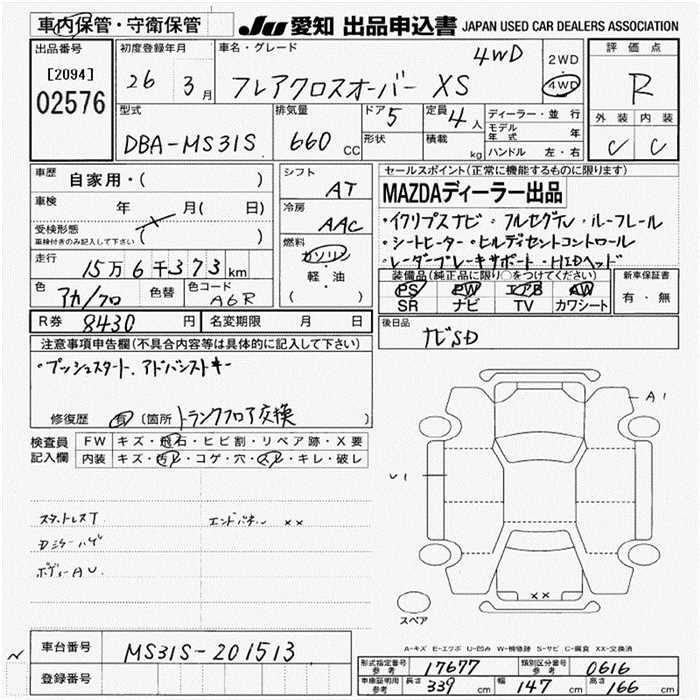 車内保管・守衛保管
JU 愛知 出品申込書 JAPAN USED CAR DEALERS ASSOCIATION
出品番号
[2094]
02576
初度登録年月
26 3月
車名・グレード
4WD
フレアクロスオーバー XS
2WD
4WD
評価点
R
外装 内装
C C
型式
DBA-MS31S
排気量
660 CC
ドア 5
形状
定員 4人
積載 kg
ディーラー・並行
モデル年式 年
ハンドル 左・右
車歴 自家用・( )
車検 年 月( 日)
受検形態
車検付きのみ記入して下さい ( )
走行
15万6千373km
色 アカ/クロ 色替 色コード A6R
シフト AT
冷房 AAC
燃料 ガソリン
軽・油
( )
セールスポイント(正常に機能するものに限ります)
MAZDAディーラー出品
・イクリプスナビ・フルセグTV・ルーフレール
・シートヒーター・ヒルディセントコントロール
・レーダーブレーキサポート・HIDヘッド
装備品(純正品に限り○をつけてください)
PS PW エアB AW
SR ナビ TV カワシート
新車保証書
有・無
R券 8430円 名変期限 月 日
後日品
ナビSD
注意事項申告欄(不具合内容等は具体的に記入して下さい)
・プッシュスタート、アドバンストキー
修復歴 有 (箇所 トランクフロア交換
検査員記入欄
FW キズ・飛石・ヒビ割・リペア跡・X要
内装 キズ・汚レ・コゲ・穴・スレ・キレ・破レ
スタットレスT
エンドパネル ××
ボディーAU
A1
U1
××
スペア
A-キズ E-エクボ U-凹み W-補修跡 S-サビ C-腐食 XX-交換済
車台番号 MS31S-201513
登録番号
型式指定番号 参考 17677 類別区分番号 参考 0616
車庫証明用 参考 長さ 339 cm 幅 147 cm 高さ 166 cm